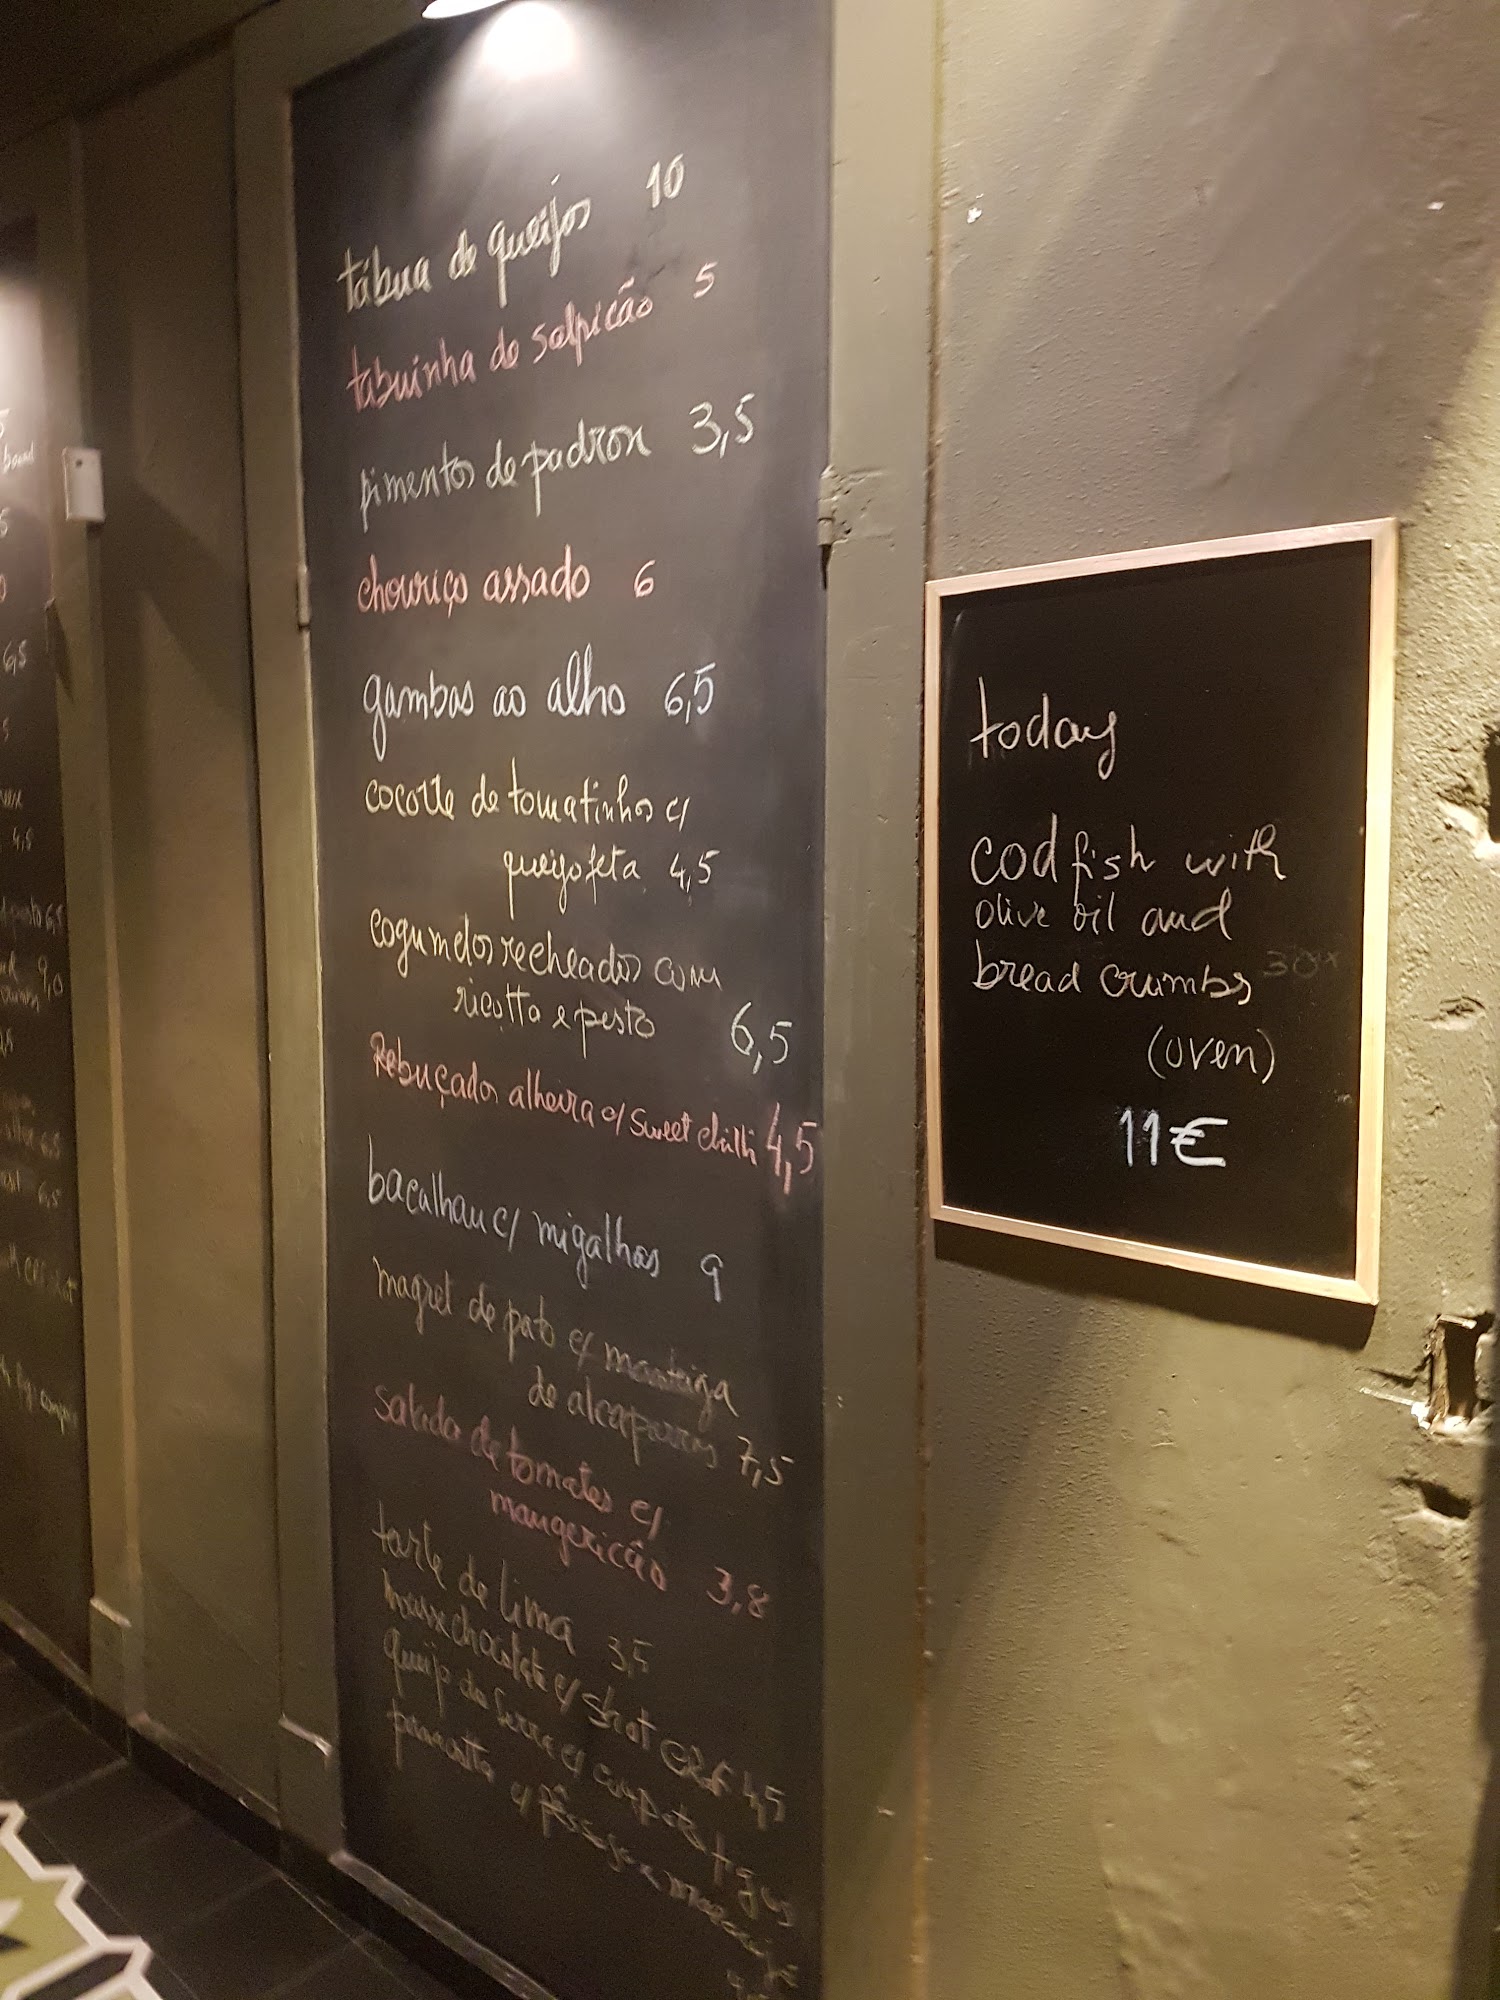 tábua de queijos 10
tabuinha de salpicão 5
pimentos de padron 3,5
chouriço assado 6
gambas ao alho 6,5
cocotte de tomatinhos c/
queijo feta 4,5
cogumelos recheados com
ricotta e pesto 6,5
Rebuçados alheira c/ sweet chilli 4,5
bacalhau c/ migalhas 9
magret de pato c/ manteiga
de alcaparras 7,5
salada de tomates c/
mangericão 3,8
tarte de lima 3,5
chocolate c/ shot café 4,5
queijo da serra c/ compota figos
panacotta c/ pêssego e
today
codfish with
olive oil and
bread crumbs
(oven)
11€
board
6,5
4,5
6,5
9,0
6,5
6,5